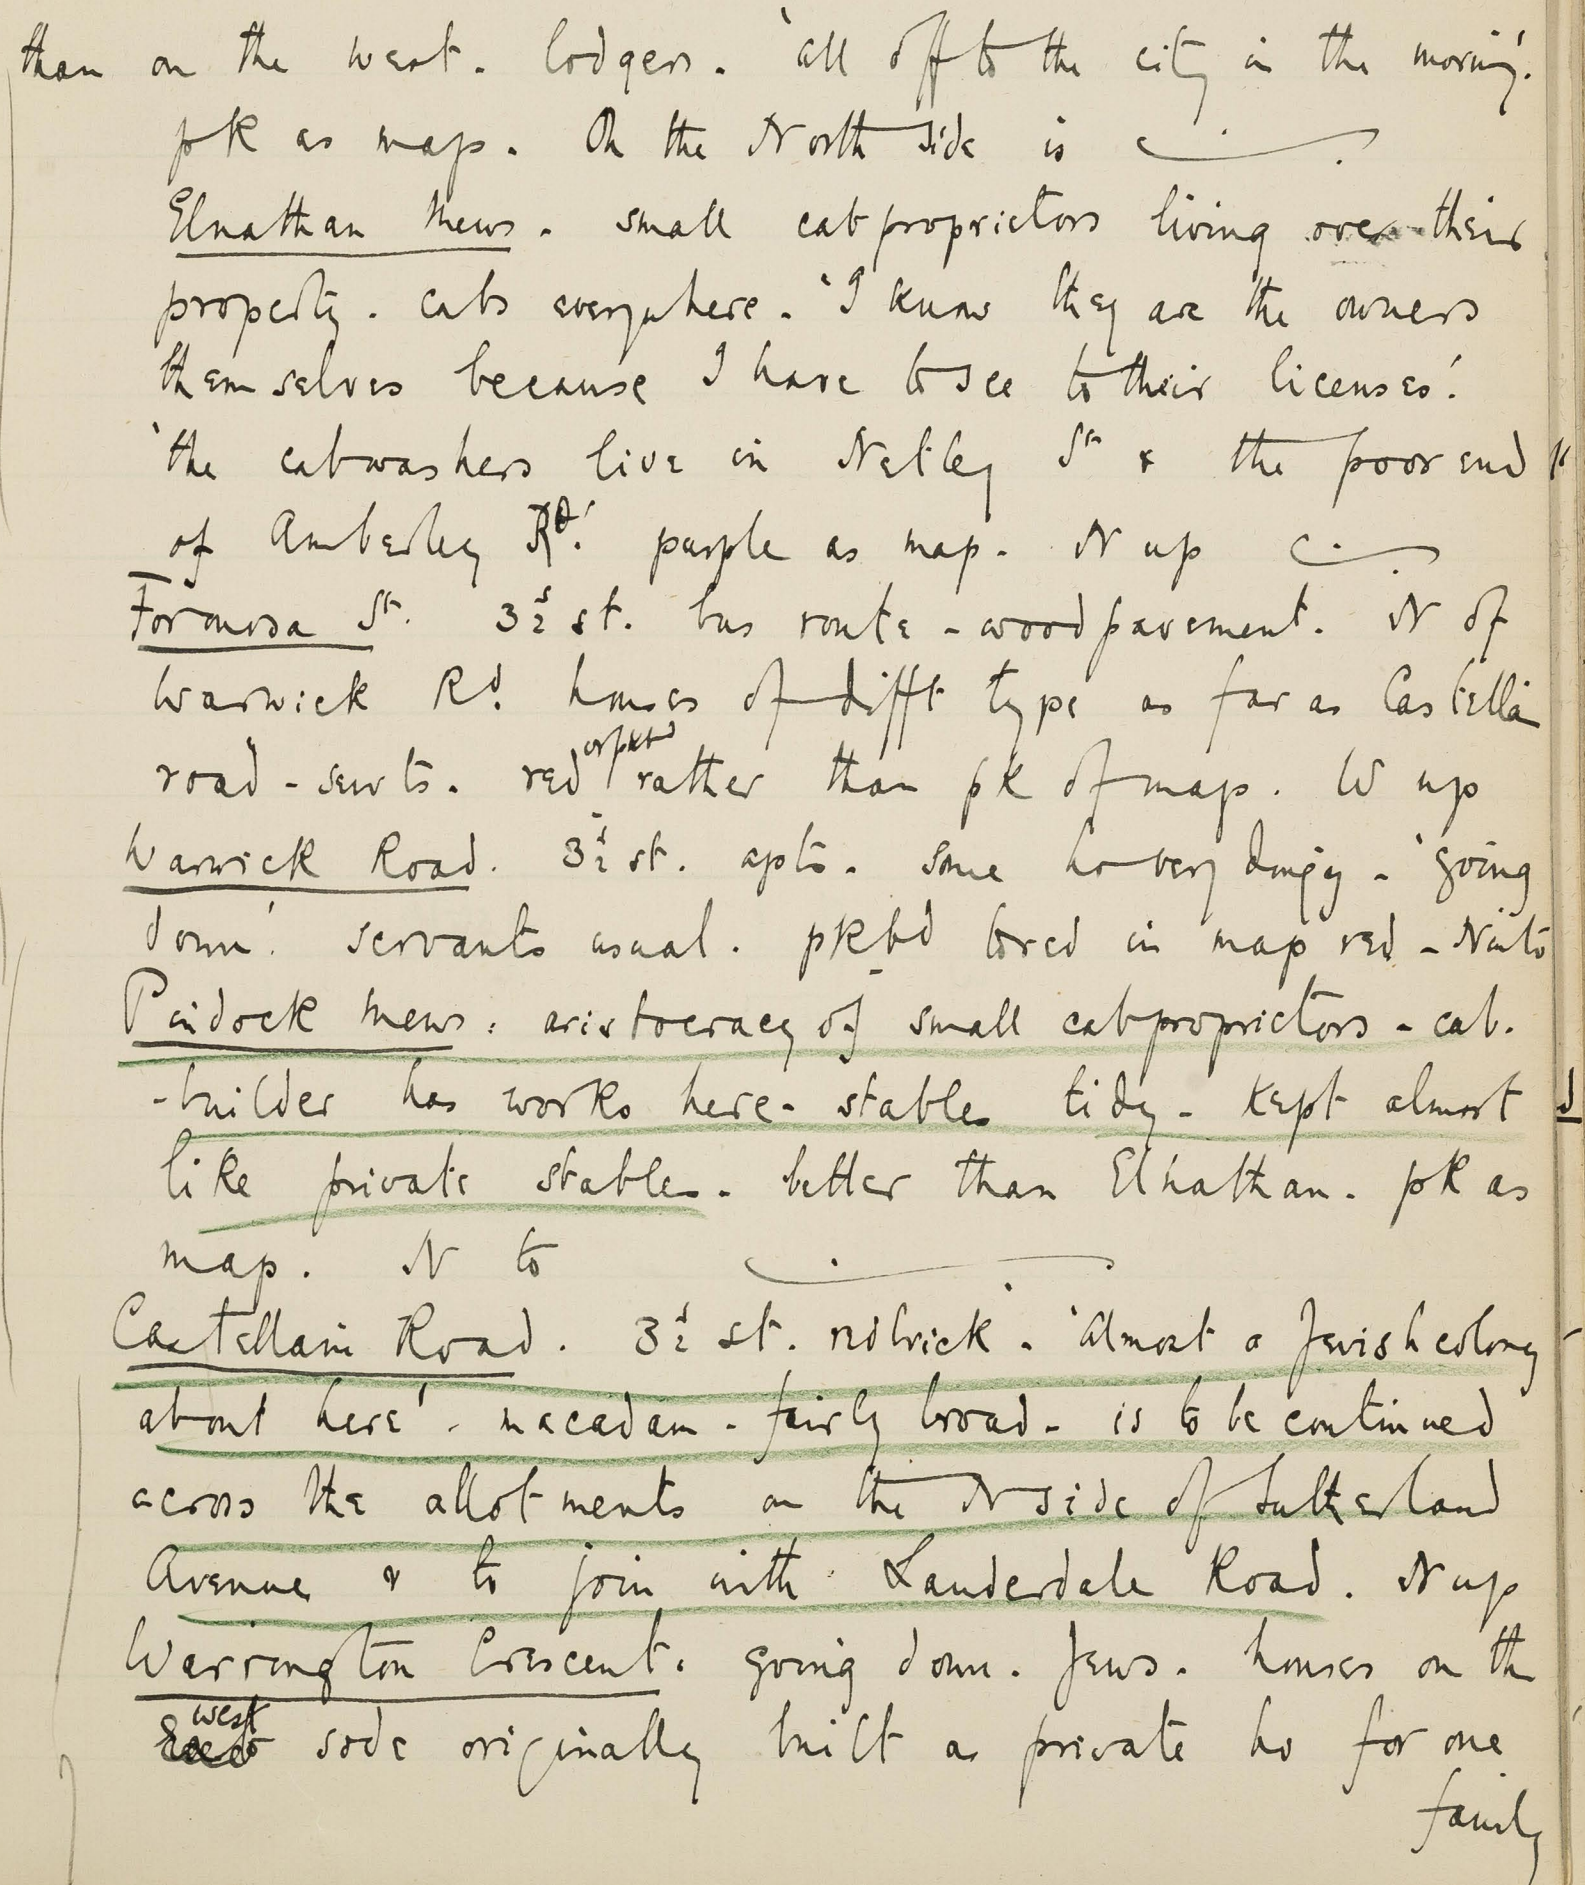 than on the west. lodgers. 'all off to the city in the morning'.
pk as map. On the North side is
Elnathan Mews. small cab proprietors living over their
property. cabs everywhere. 'I know they are the owners
themselves because I have to see to their licenses'.
'the cabwashers live in Netley St & the poor end
of Amberley Rd.' purple as map. N up
Formosa St. 3½ st. bus route - wood pavement. N of
Warwick Rd. houses of difft type as far as Castellain
road - servts. red or pkbd rather than pk of map. W up
Warwick Road. 3½ st. apts. Some ho very dingy - 'going
down'. servants usual. pkbd to red in map red - N into
Pindock Mews: aristocracy of small cab proprietors - cab.
-builder has works here - stables tidy - kept almost
like private stables. better than Elnathan. pk as
map. N to
Castellain Road. 3½ st. red brick. 'Almost a Jewish colony
about here'. macadam - fairly broad - is to be continued
across the allotments on the N side of Sutherland
Avenue & to join with Lauderdale Road. N up
Warrington Crescent. going down. Jews. houses on the
west side originally built as private ho for one
family